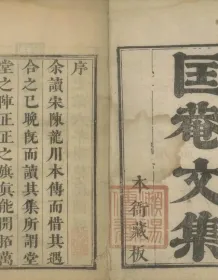 匡菴文集
本衙藏板
序
余讀宋陳龍川本傳而惜其遇
合之已晚旣而讀其集所謂堂
堂之陣正正之旗眞能開拓萬